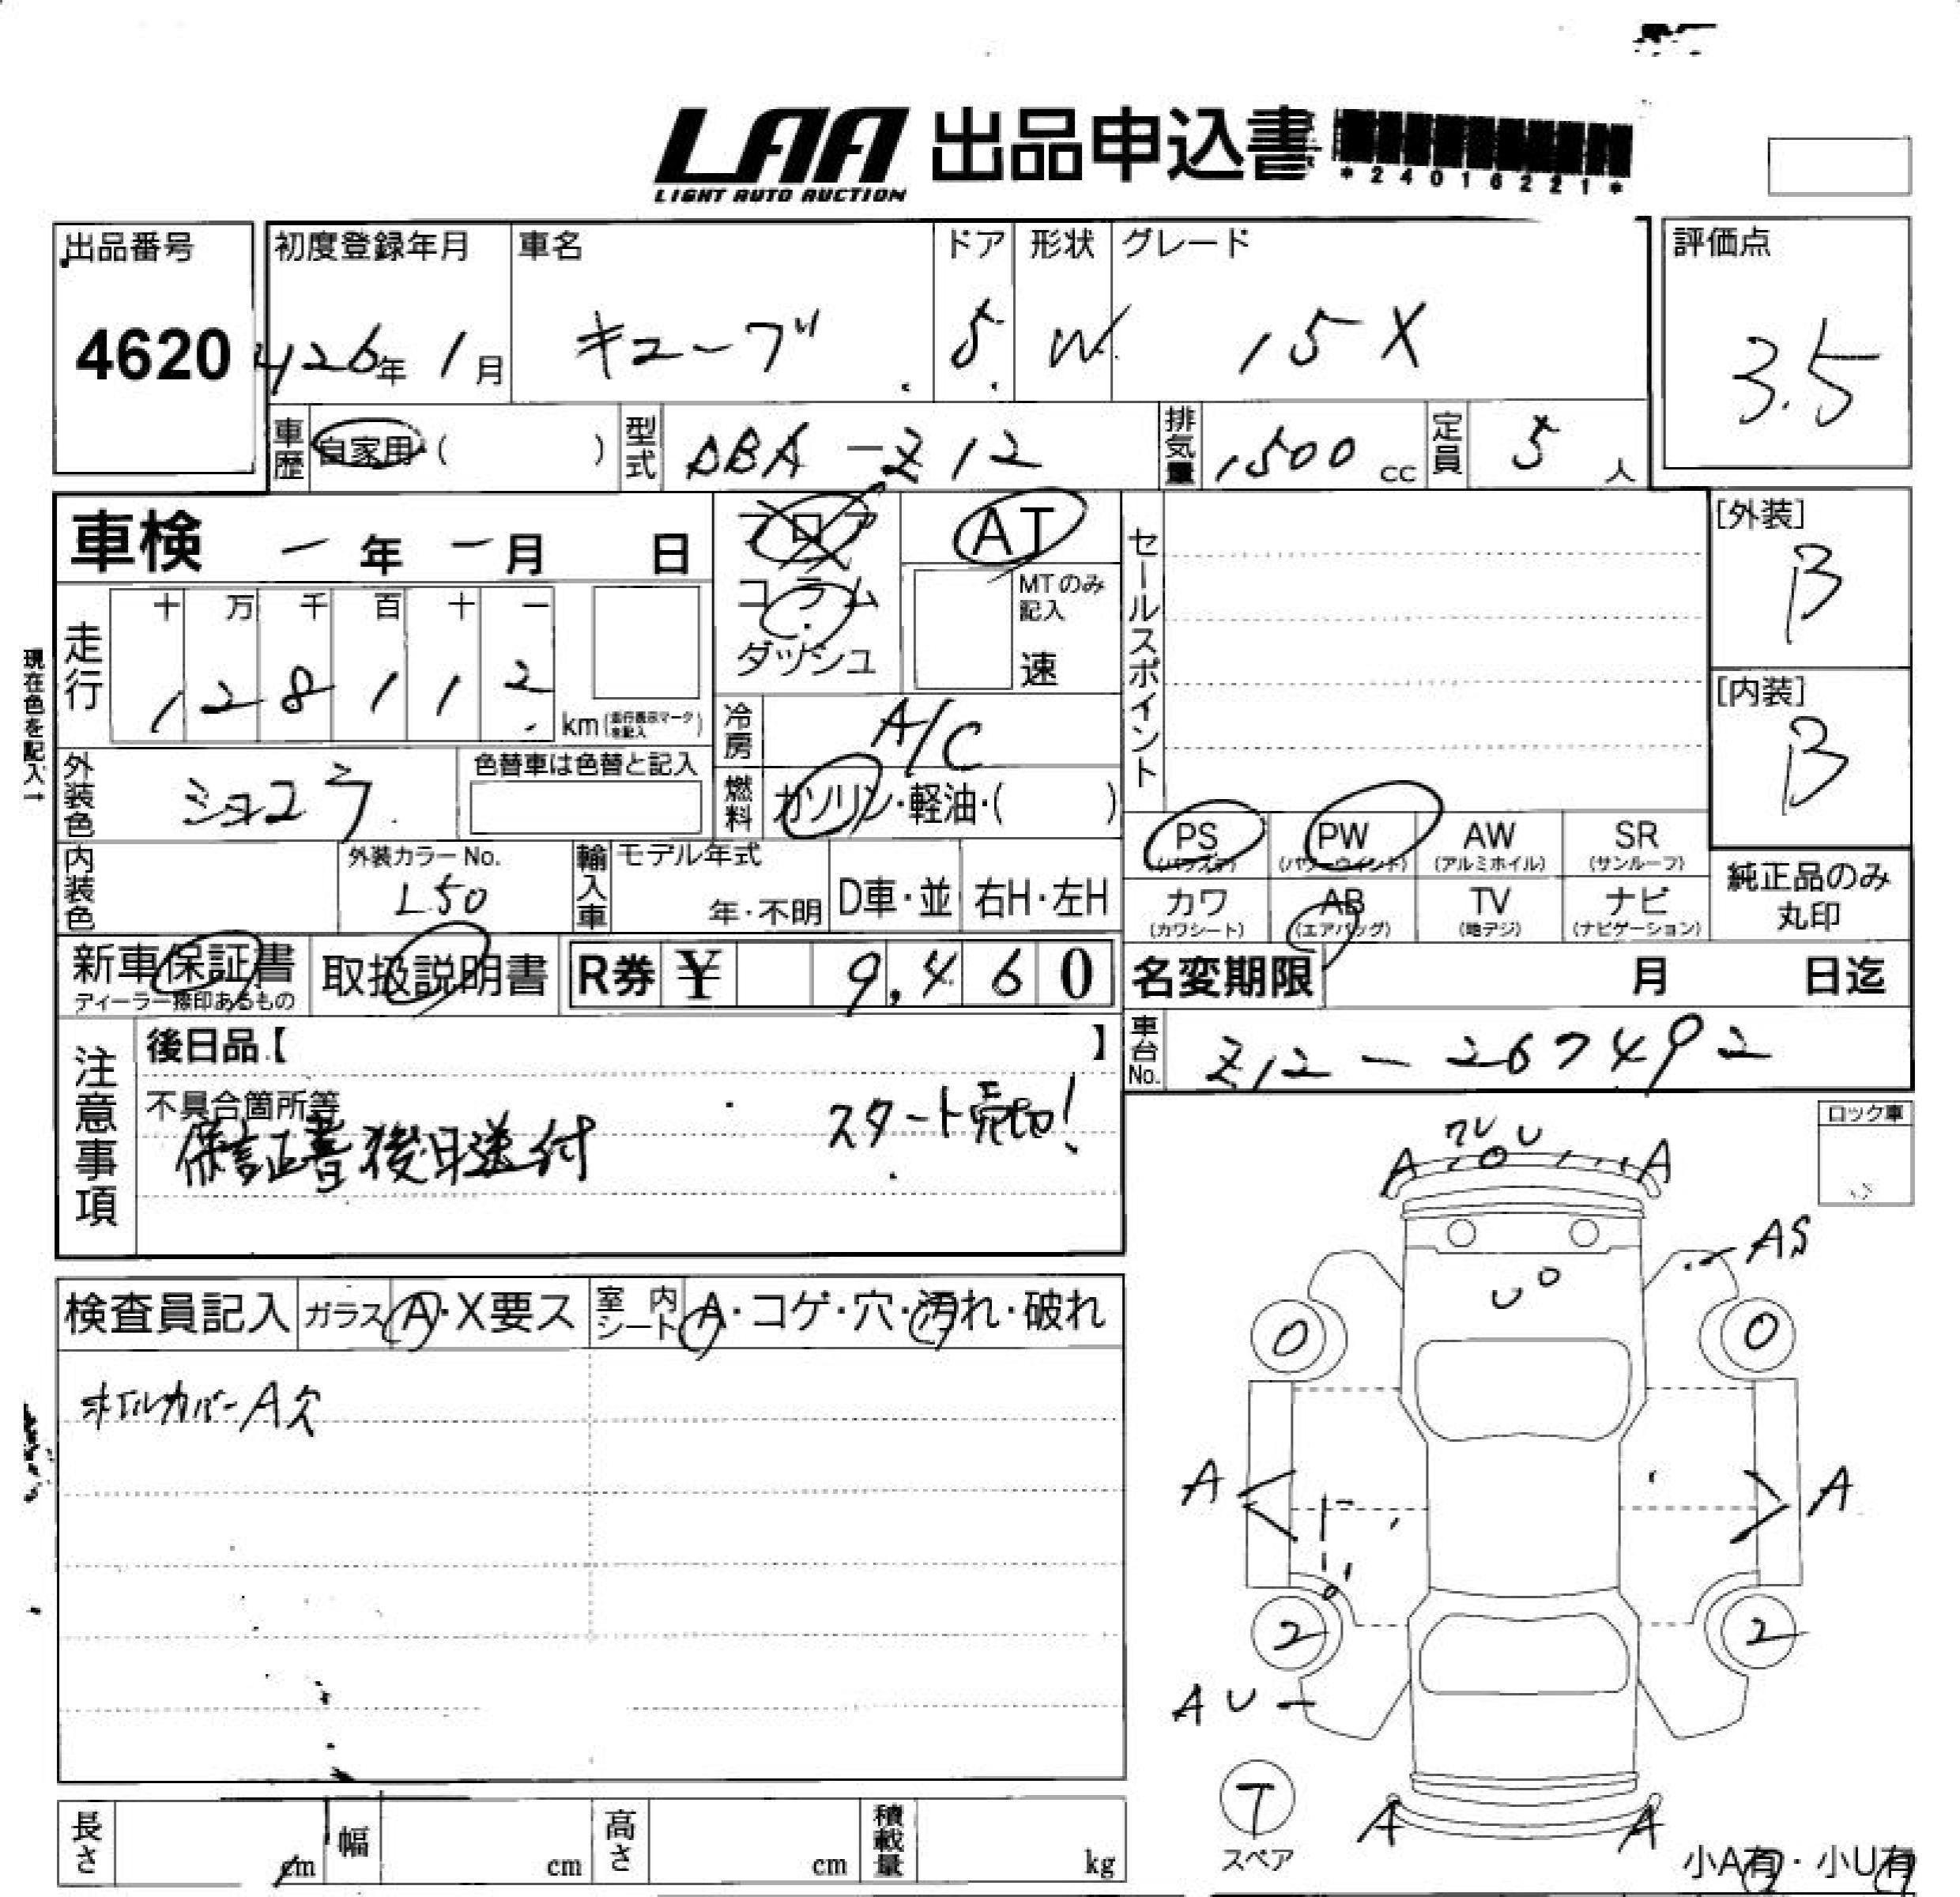 LAA 出品申込書
LIGHT AUTO AUCTION
*24016221*
出品番号
4620
初度登録年月
H26年 1月
車名
キューブ
ドア
5
形状
W
グレード
15X
評価点
3.5
車歴 自家用・( )
型式 DBA-Z12
排気量 1500 cc
定員 5 人
車検 - 年 - 月 日
フロア
コラム
ダッシュ
AT
MTのみ記入
速
セールスポイント
[外装]
B
[内装]
B
現在色を記入→
走行
十 万 千 百 十 一
1 2 8 1 1 2
km (走行表示マークを記入)
冷房 A/C
外装色 ショコラ
色替車は色替と記入
燃料 ガソリン・軽油・( )
PS (パワステ)
PW (パワーウインド)
AW (アルミホイル)
SR (サンルーフ)
カワ (カワシート)
AB (エアバッグ)
TV (地デジ)
ナビ (ナビゲーション)
純正品のみ
丸印
内装色
外装カラーNo.
L50
輸入車
モデル年式
年・不明
D車・並
右H・左H
新車保証書
ディーラー捺印あるもの
取扱説明書
R券 ¥ 9,460
名変期限 月 日迄
車台No. Z12-267492
注意事項
後日品【 】
不具合箇所等
保証書後日送付
スタート売切!
ロック車
検査員記入
ガラス A・X要ス
室内シート A・コゲ・穴・汚れ・破れ
ホイルカバーA欠
A
U
A
AS
U
0
0
A
A
2
2
AU
T
スペア
A
A
小A有・小U有
長さ cm
幅 cm
高さ cm
積載量 kg